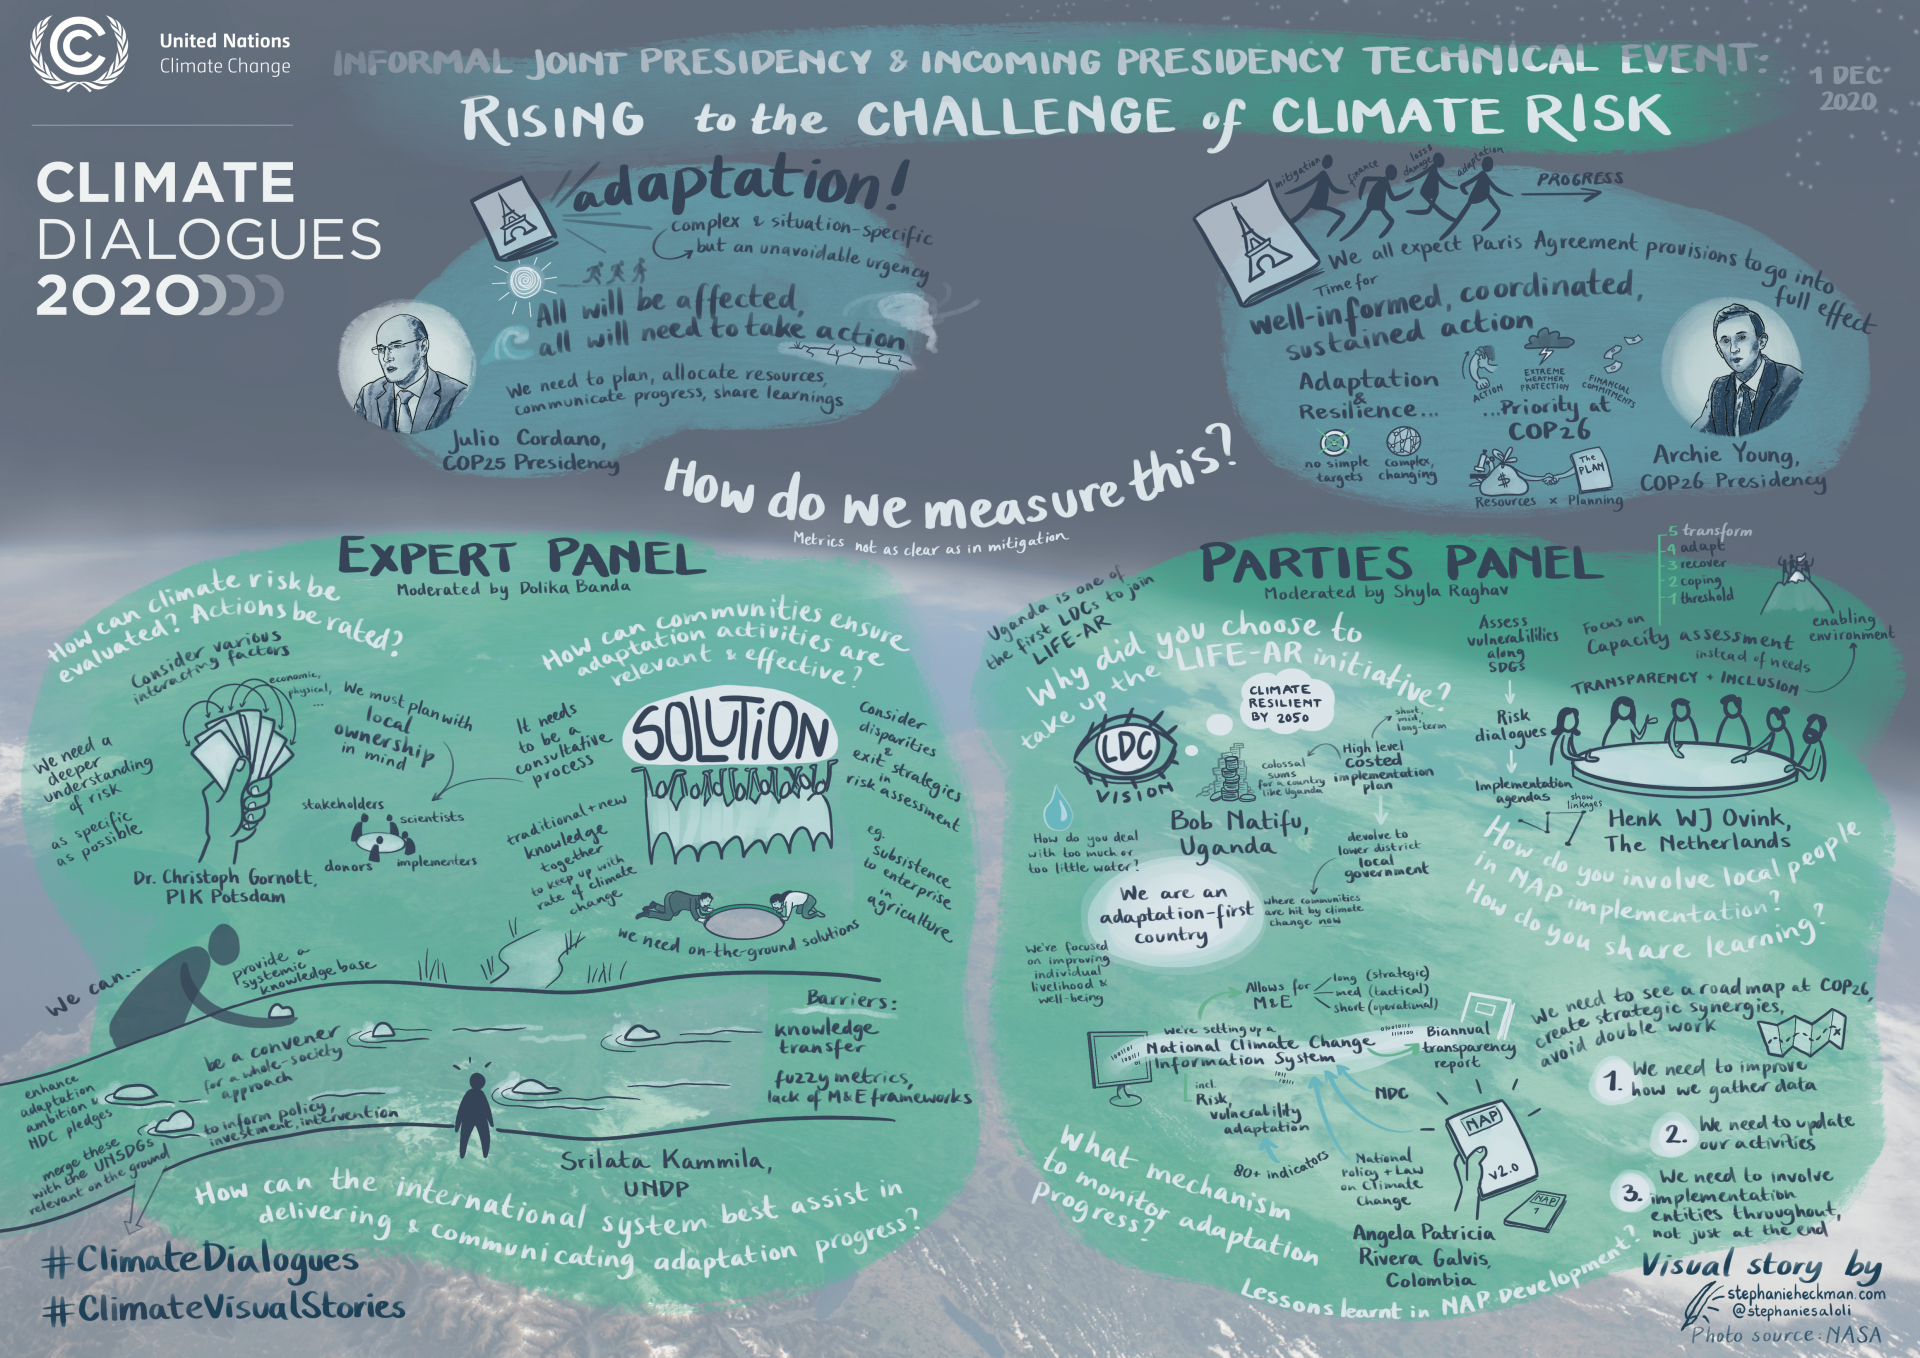 United Nations
Climate Change
CLIMATE
DIALOGUES
2020
INFORMAL JOINT PRESIDENCY & INCOMING PRESIDENCY TECHNICAL EVENT:
RISING to the CHALLENGE of CLIMATE RISK
1 DEC
2020
adaptation!
complex & situation-specific
but an unavoidable urgency
All will be affected,
all will need to take action
We need to plan, allocate resources,
communicate progress, share learnings
Julio Cordano,
COP25 Presidency
mitigation
finance
loss &
damage
adaptation
PROGRESS
We all expect Paris Agreement provisions to go into
full effect
Time for
well-informed, coordinated,
sustained action
Adaptation
&
Resilience...
ACTION
EXTREME
WEATHER
PROTECTION
FINANCIAL
COMMITMENTS
...Priority at
COP26
no simple
targets
complex,
changing
$
The
PLAN
Resources x Planning
Archie Young,
COP26 Presidency
How do we measure this?
Metrics not as clear as in mitigation
EXPERT PANEL
Moderated by Dolika Banda
How can climate risk be
evaluated? Actions be rated?
Consider various
interacting factors
economic,
physical,
...
We need a
deeper
understanding
of risk
as specific
as possible
We must plan with
local
ownership
in mind
stakeholders
scientists
donors
implementers
Dr. Christoph Gornott,
PIK Potsdam
How can communities ensure
adaptation activities are
relevant & effective?
It needs
to be a
consultative
process
SOLUTION
Consider
disparities
&
exit strategies
in
risk assessment
eg.
subsistence
to enterprise
in
agriculture
traditional + new
knowledge
together
to keep up with
rate of climate
change
We need on-the-ground solutions
We can...
provide a
systemic
knowledge base
be a convener
for a whole-society
approach
to inform policy,
investment, intervention
enhance
adaptation
ambition &
NDC pledges
merge these
with the UNSDGs
relevant on the ground
Barriers:
knowledge
transfer
fuzzy metrics,
lack of M&E frameworks
Srilata Kammila,
UNDP
How can the international system best assist in
delivering & communicating adaptation progress?
#ClimateDialogues
#ClimateVisualStories
PARTIES PANEL
Moderated by Shyla Raghav
Uganda is one of
the first LDCs to join
LIFE-AR
Why did you choose to
take up the LIFE-AR initiative?
LDC
VISION
CLIMATE
RESILIENT
BY 2050
colossal
sums
for a country
like Uganda
High level
costed
implementation
plan
short,
mid,
long-term
Bob Natifu,
Uganda
devolve to
lower district
local
government
where communities
are hit by climate
change now
How do you deal
with too much or
too little water?
We are an
adaptation-first
country
We're focused
on improving
individual
livelihood &
well-being
5 transform
4 adapt
3 recover
2 coping
1 threshold
Assess
vulnerabilities
along
SDGs
Risk
dialogues
Implementation
agendas
show
linkages
Focus on
Capacity assessment
instead of needs
enabling
environment
TRANSPARENCY + INCLUSION
Henk WJ Ovink,
The Netherlands
How do you involve local people
in NAP implementation?
How do you share learning?
Allows for
M&E
long (strategic)
med (tactical)
short (operational)
We're setting up a
National Climate Change
Information System
Biannual
transparency
report
incl.
Risk,
vulnerability
adaptation
80+ indicators
NDC
National
Policy + Law
on Climate
Change
NAP
v2.0
NAP
1
Angela Patricia
Rivera Galvis,
Colombia
What mechanism
to monitor adaptation
progress?
Lessons learnt in NAP Development?
We need to see a road map at COP26,
create strategic synergies,
avoid double work
1. We need to improve
how we gather data
2. We need to update
our activities
3. We need to involve
implementation
entities throughout,
not just at the end
Visual story by
stephanieheckman.com
@stephaniesaloli
Photo source: NASA